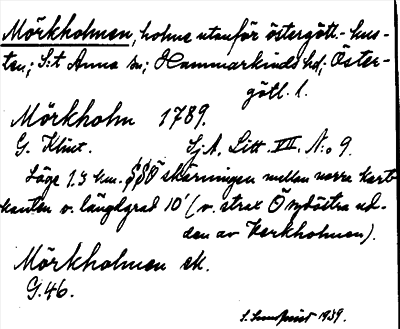 Mörkholmen, holme utanför östergötl.-kus-
ten; S:t Anna sn; Hammarkinds hd; Öster-
götl. l.
Mörkholm 1789.
G. Klint. Sj.A. Litt. VII. N:o 9.
Läge 1.3 km. SSO skärningen mellan norra kart-
kanten o. längdgrad 10' (o. strax Ö sydöstra ud-
den av Korkholmen).
Mörkholmen ek.
G.46.
1939.